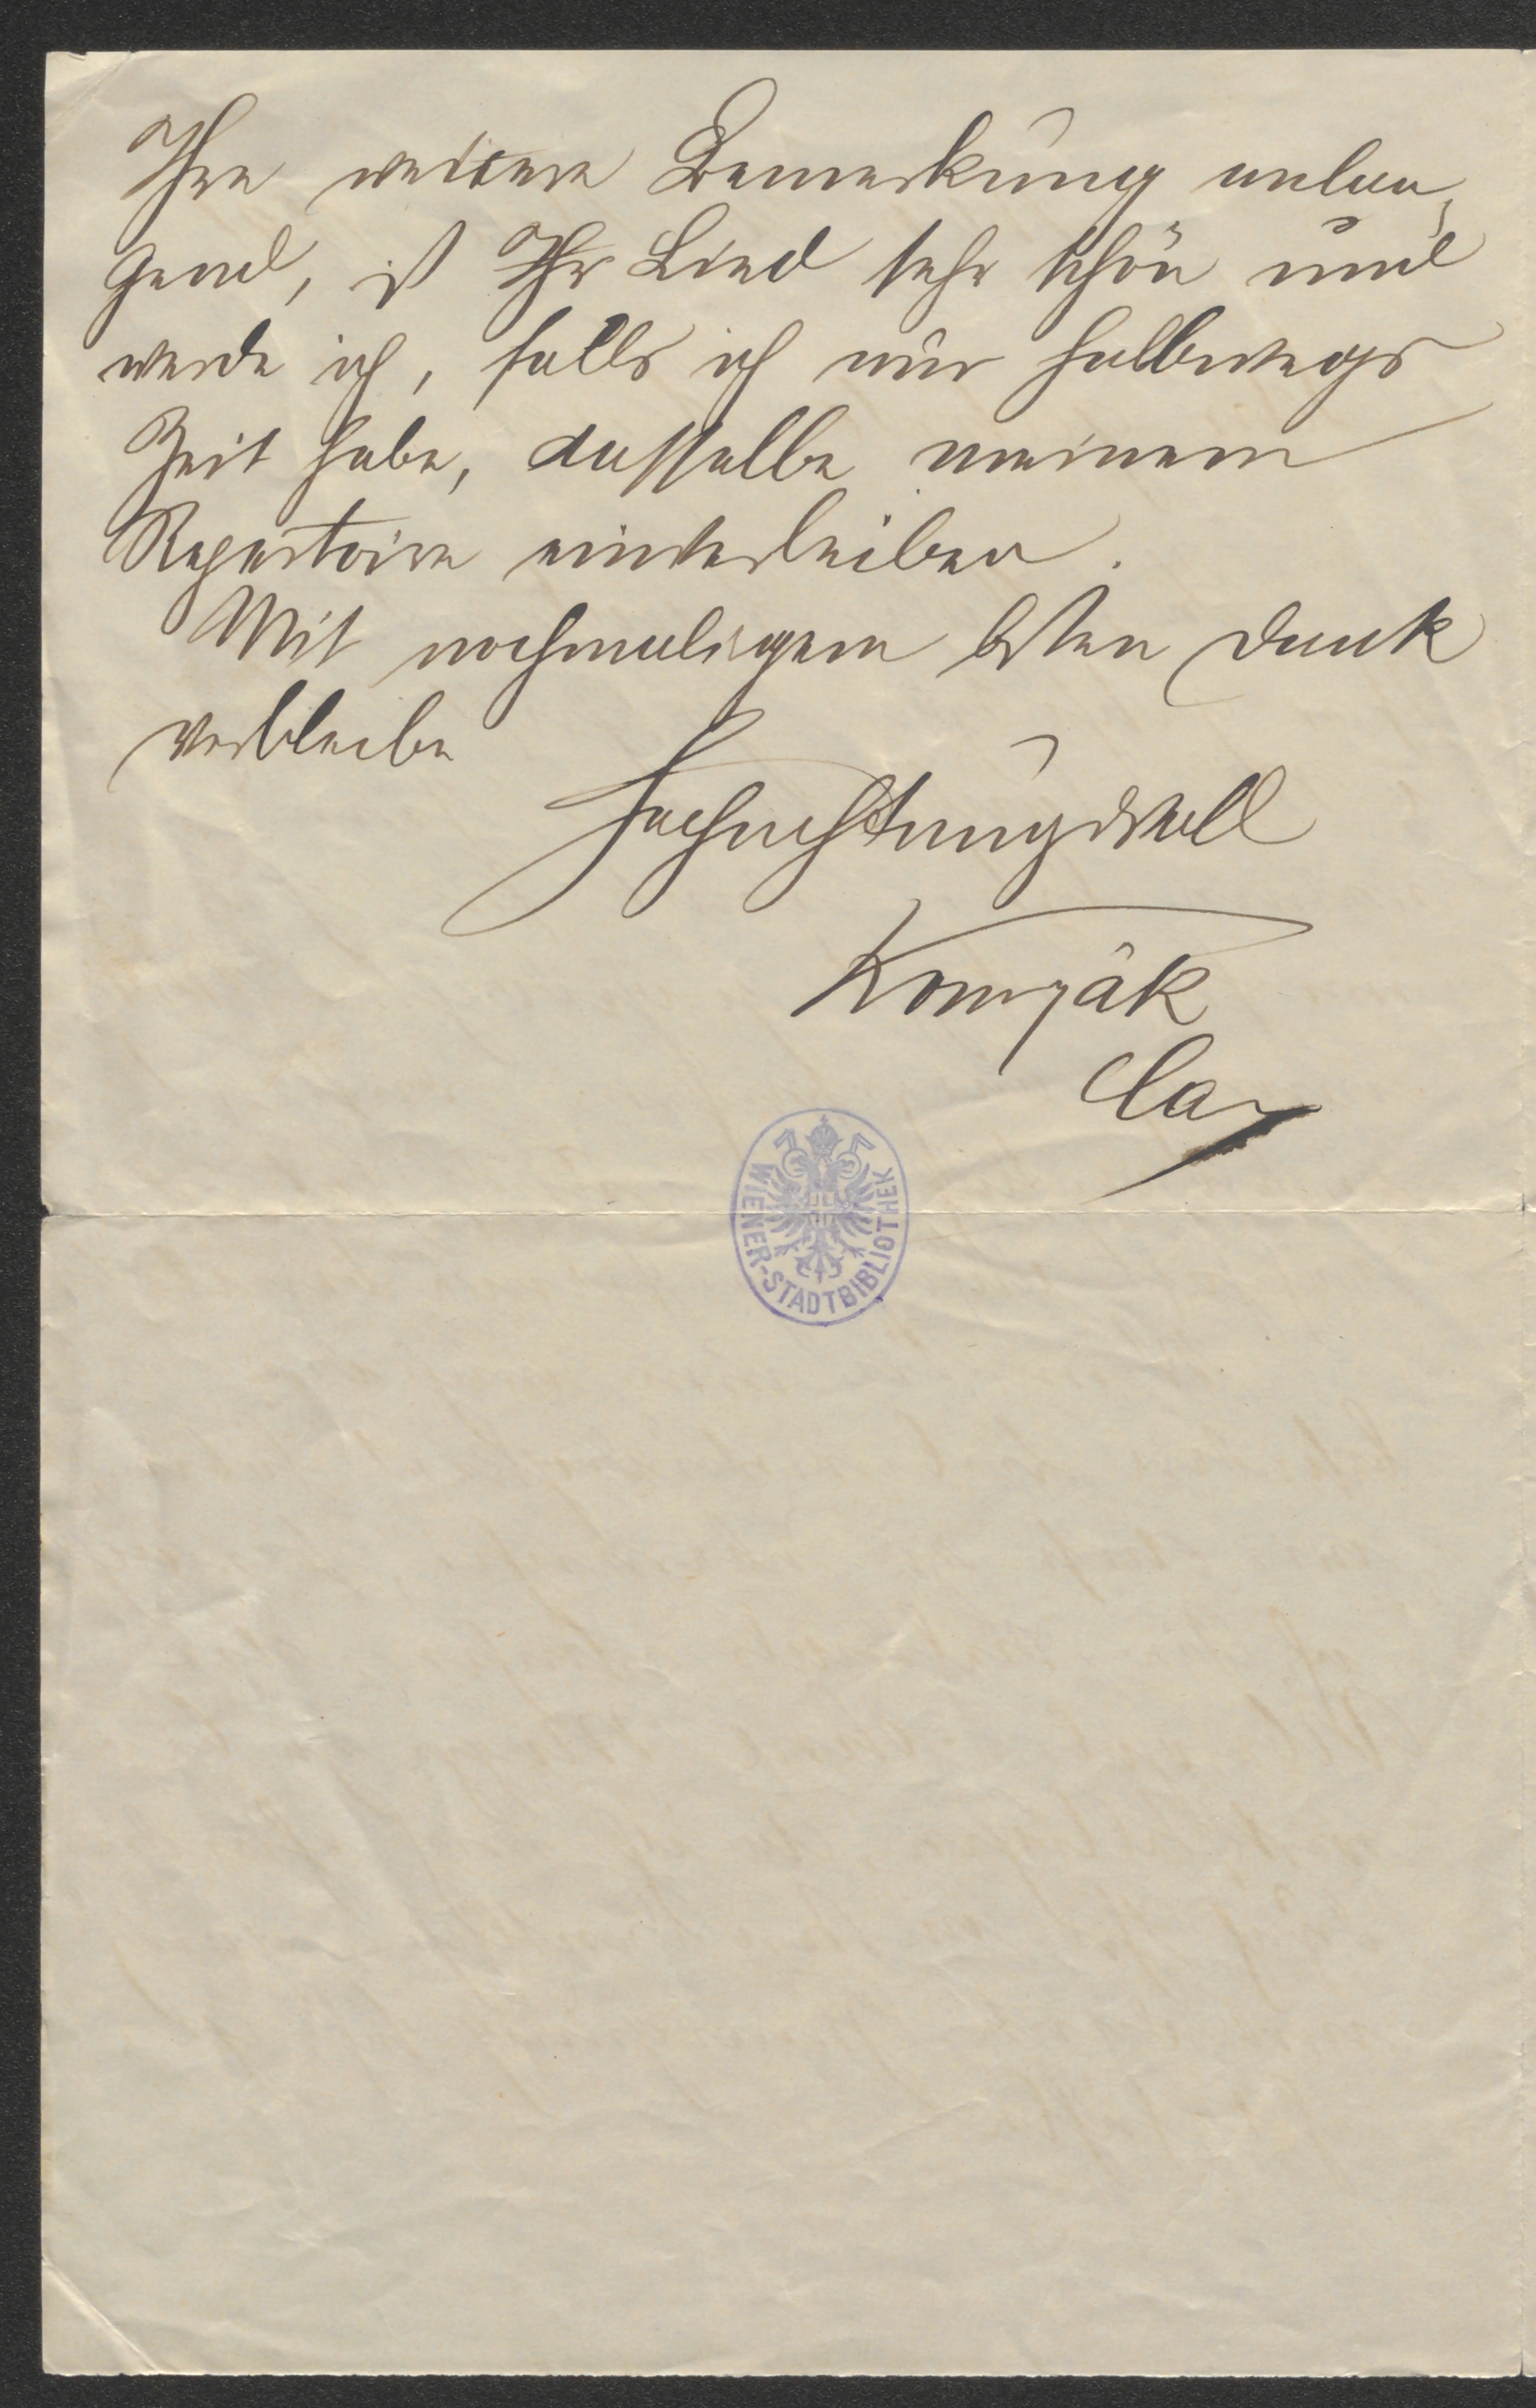 Ihre weitere Bemerkung anlan-
gend, ist Ihr Lied sehr schön und
werde ich, falls ich nur halbwegs
Zeit habe, dasselbe meinem
Repertoire einverleiben.
Mit nochmaligem besten Dank
verbleibe
Hochachtungsvoll
Komzák
WIENER-STADTBIBLIOTHEK